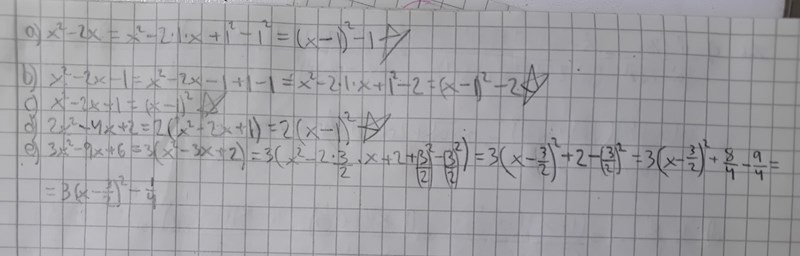 a) x²-2x = x²-2·1·x+1²-1² = (x-1)²-1
b) x²-2x-1 = x²-2x-1+1-1 = x²-2·1·x+1²-2 = (x-1)²-2
c) x²-2x+1 = (x-1)²
d) 2x²-4x+2 = 2(x²-2x+1) = 2(x-1)²
e) 3x²-9x+6 = 3(x²-3x+2) = 3(x²-2·3/2·x+2+(3/2)²-(3/2)²) = 3(x-3/2)²+2-(3/2)² = 3(x-3/2)²+8/4-9/4 =
= 3(x-3/2)²-1/4